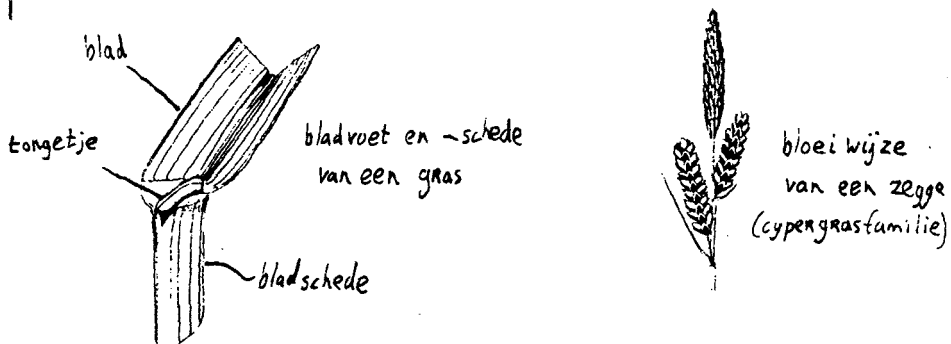 blad
tongetje
bladvoet en -schede
van een gras
bladschede
bloeiwijze
van een zegge
(cypergrasfamilie)